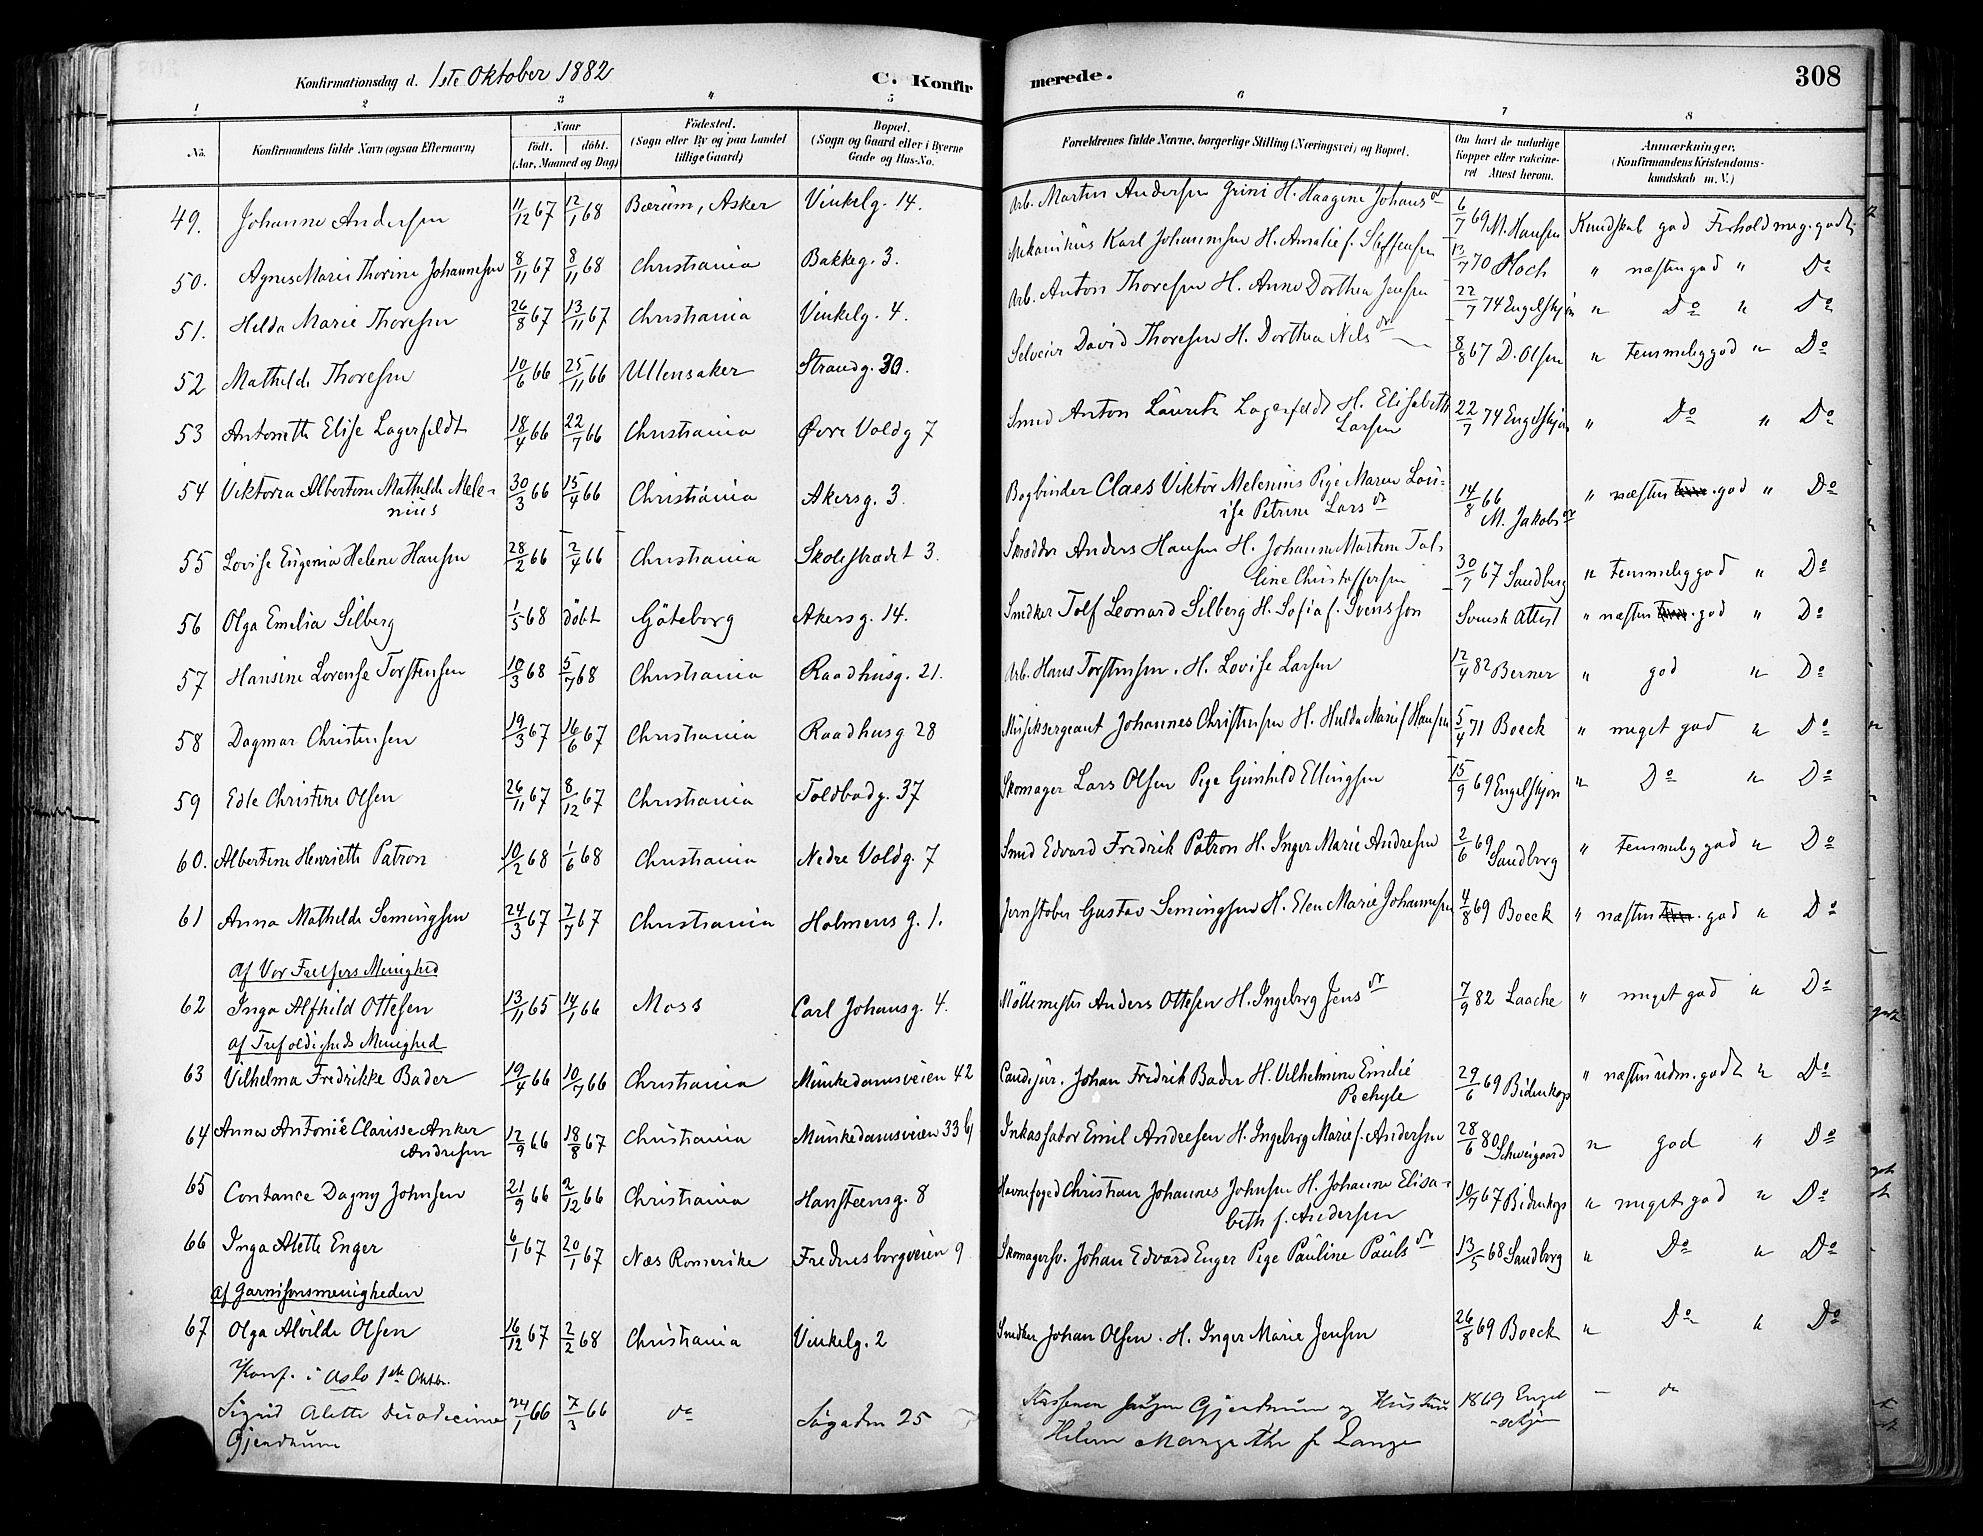 Konfirmationsdag d. 1ste Oktober 1882 C. Konfirmerede. 308
1 2 3 4 5 6 7 8
No. Konfirmandens fulde Navn (ogsaa Efternavn) Naar født. døbt. (Aar, Maaned og Dag) Fødested. (Sogn eller By og paa Landet tillige Gaard) Bopæl. (Sogn og Gaard eller i Byerne Gade og Hus-No.) Forældrenes fulde Navne, borgerlige Stilling (Næringsvei) og Bopæl. Om havt de naturlige Kopper eller vakcineret Attest herom. Anmærkninger. (Konfirmandens Kristendomskundskab m. V.)
49. Johanne Andersen 11/12 67 12/1 68 Bærum, Asker Vinkelg. 14. Arb. Martin Andersen Grini H. Haagine Johansdr 6/7 69 M. Hansen Kundskab god Forhold meg. godt
50. Agnes Marie Thorine Johannesen 8/11 67 8/11 68 Christiania Bakkeg. 3. Mekanikus Karl Johannesen H. Amalie f. Steffensen 13/7 70 Hoch " næsten god " Do
51. Helda Marie Thoresen 26/8 67 13/11 67 Christiania Vinkelg. 4. Arb. Anton Thoresen H. Anne Dorthea Jensen 22/7 74 Engelskjøn " Do " Do
52 Mathilde Thoresen 10/6 66 25/11 66 Ullensaker Strandg. 30. Selveier David Thoresen H. Dorthea Nilsdr 8/8 67 D. Olsen " Temmelig god " Do
53 Antonette Elise Lagerfeldt 18/4 66 22/7 66 Christiania Øvre Voldg 7 Smed Anton Lauritz Lagerfeldt H. Elisabeth Larsen 22/7 74 Engelskjøn " Do " Do
54 Viktoria Albertine Mathilde Melenius 30/3 66 15/4 66 Christiania Akersg. 3. Bogbinder Claes Viktor Melenius Pige Maren Louise Petrine Larsdr 14/8 66 M. Jakobsdr " næsten god " Do
55 Lovise Eugenia Helene Hansen 28/2 66 2/4 66 Christiania Skolestrædet 3. Skrædder Anders Hansen H. Johanne Martine Taline Christoffersen 30/7 67 Sandberg " Temmelig god " Do
56 Olga Emelia Silberg 1/5 68 døbt Göteborg Akersg. 14. Snedker Tolf Leonard Silberg H. Sofia f. Svensson Svensk Attest " næsten god " Do
57 Hansine Lorense Torstensen 10/3 68 5/7 68 Christiania Raadhusg. 21. Arb. Hans Torstensen. H. Lovise Larsen 12/4 82 Berner " god " Do
58 Dagmar Christensen 19/3 67 16/6 67 Christiania Raadhusg 28 Musiksergeant Johannes Christensen H. Hulda Marie f Hansen 5/4 71 Boeck " meget god " Do
59 Edle Christine Olsen 26/11 67 8/12 67 Christiania Toldbodg. 37 Skomager Lars Olsen Pige Gunhild Ellingsen 15/9 69 Engelskjøn " Do " Do
60. Albertine Henriette Patron 10/2 68 1/6 68 Christiania Nedre Voldg. 7 Smed Edvard Fredrik Patron H. Inger Marie Andresen 2/6 69 Sandberg " Temmelig god " Do
61 Anna Mathilde Semingsen 24/3 67 7/7 67 Christiania Holmens g. 1. Jernstøber Gustav Semingsen H. Elen Marie Johannesen 4/8 69 Boeck " næsten god " Do
af Vor Frelsers Menighed
62 Inga Alfhild Ottesen 13/11 65 14/1 66 Moss Carl Johansg. 4. Møllemester Anders Ottesen H. Ingeborg Jensdr 7/9 82 Laache " meget god " Do
af Trefoldigheds Menighed
63 Vilhelma Fredrikke Bader 19/4 66 10/7 66 Christiania Munkedamsveien 42 Cand. jur. Johan Fredrik Bader H. Vilhelmine Emilie Pechyle 29/6 69 Bidenkap " næsten udm. godt " Do
64 Anna Antonie Clarisse Anker Andresen 12/9 66 18/8 67 Christiania Munkedamsveien 33 b Inkassator Emil Andresen H. Ingeborg Marie f. Andersen 28/6 80 Schweigaard " god " Do
65 Constance Dagny Johnsen 21/9 66 2/12 66 Christiania Hansteensg. 8 Havnefoged Christian Johannes Johnsen H. Johanne Elisabeth f. Andersen 10/7 67 Bidenkap " meget god " Do
66 Inga Alette Enger 6/1 67 20/1 67 Næs Romerike Fredensborgveien 9 Skomagersv. Johan Edvard Enger Pige Pauline Paulsdr 13/5 68 Sandberg " Do " Do
af Garnisonsmenigheden
67 Olga Alvilde Olsen 16/12 67 2/2 68 Christiania Vinkelg. 2 Snedker Johan Olsen. H. Inger Marie Jensen 26/8 69 Boeck " Do " Do
Konf. i Oslo 1ste Oktbr.
Sigrid Alette Duodecime Gjerdrum 24/1 66 7/3 66 do Søgaden 25 Kasserer Gjerdrum og Hustru Helene Margrethe f Lange 1869 Engelskjøn — do